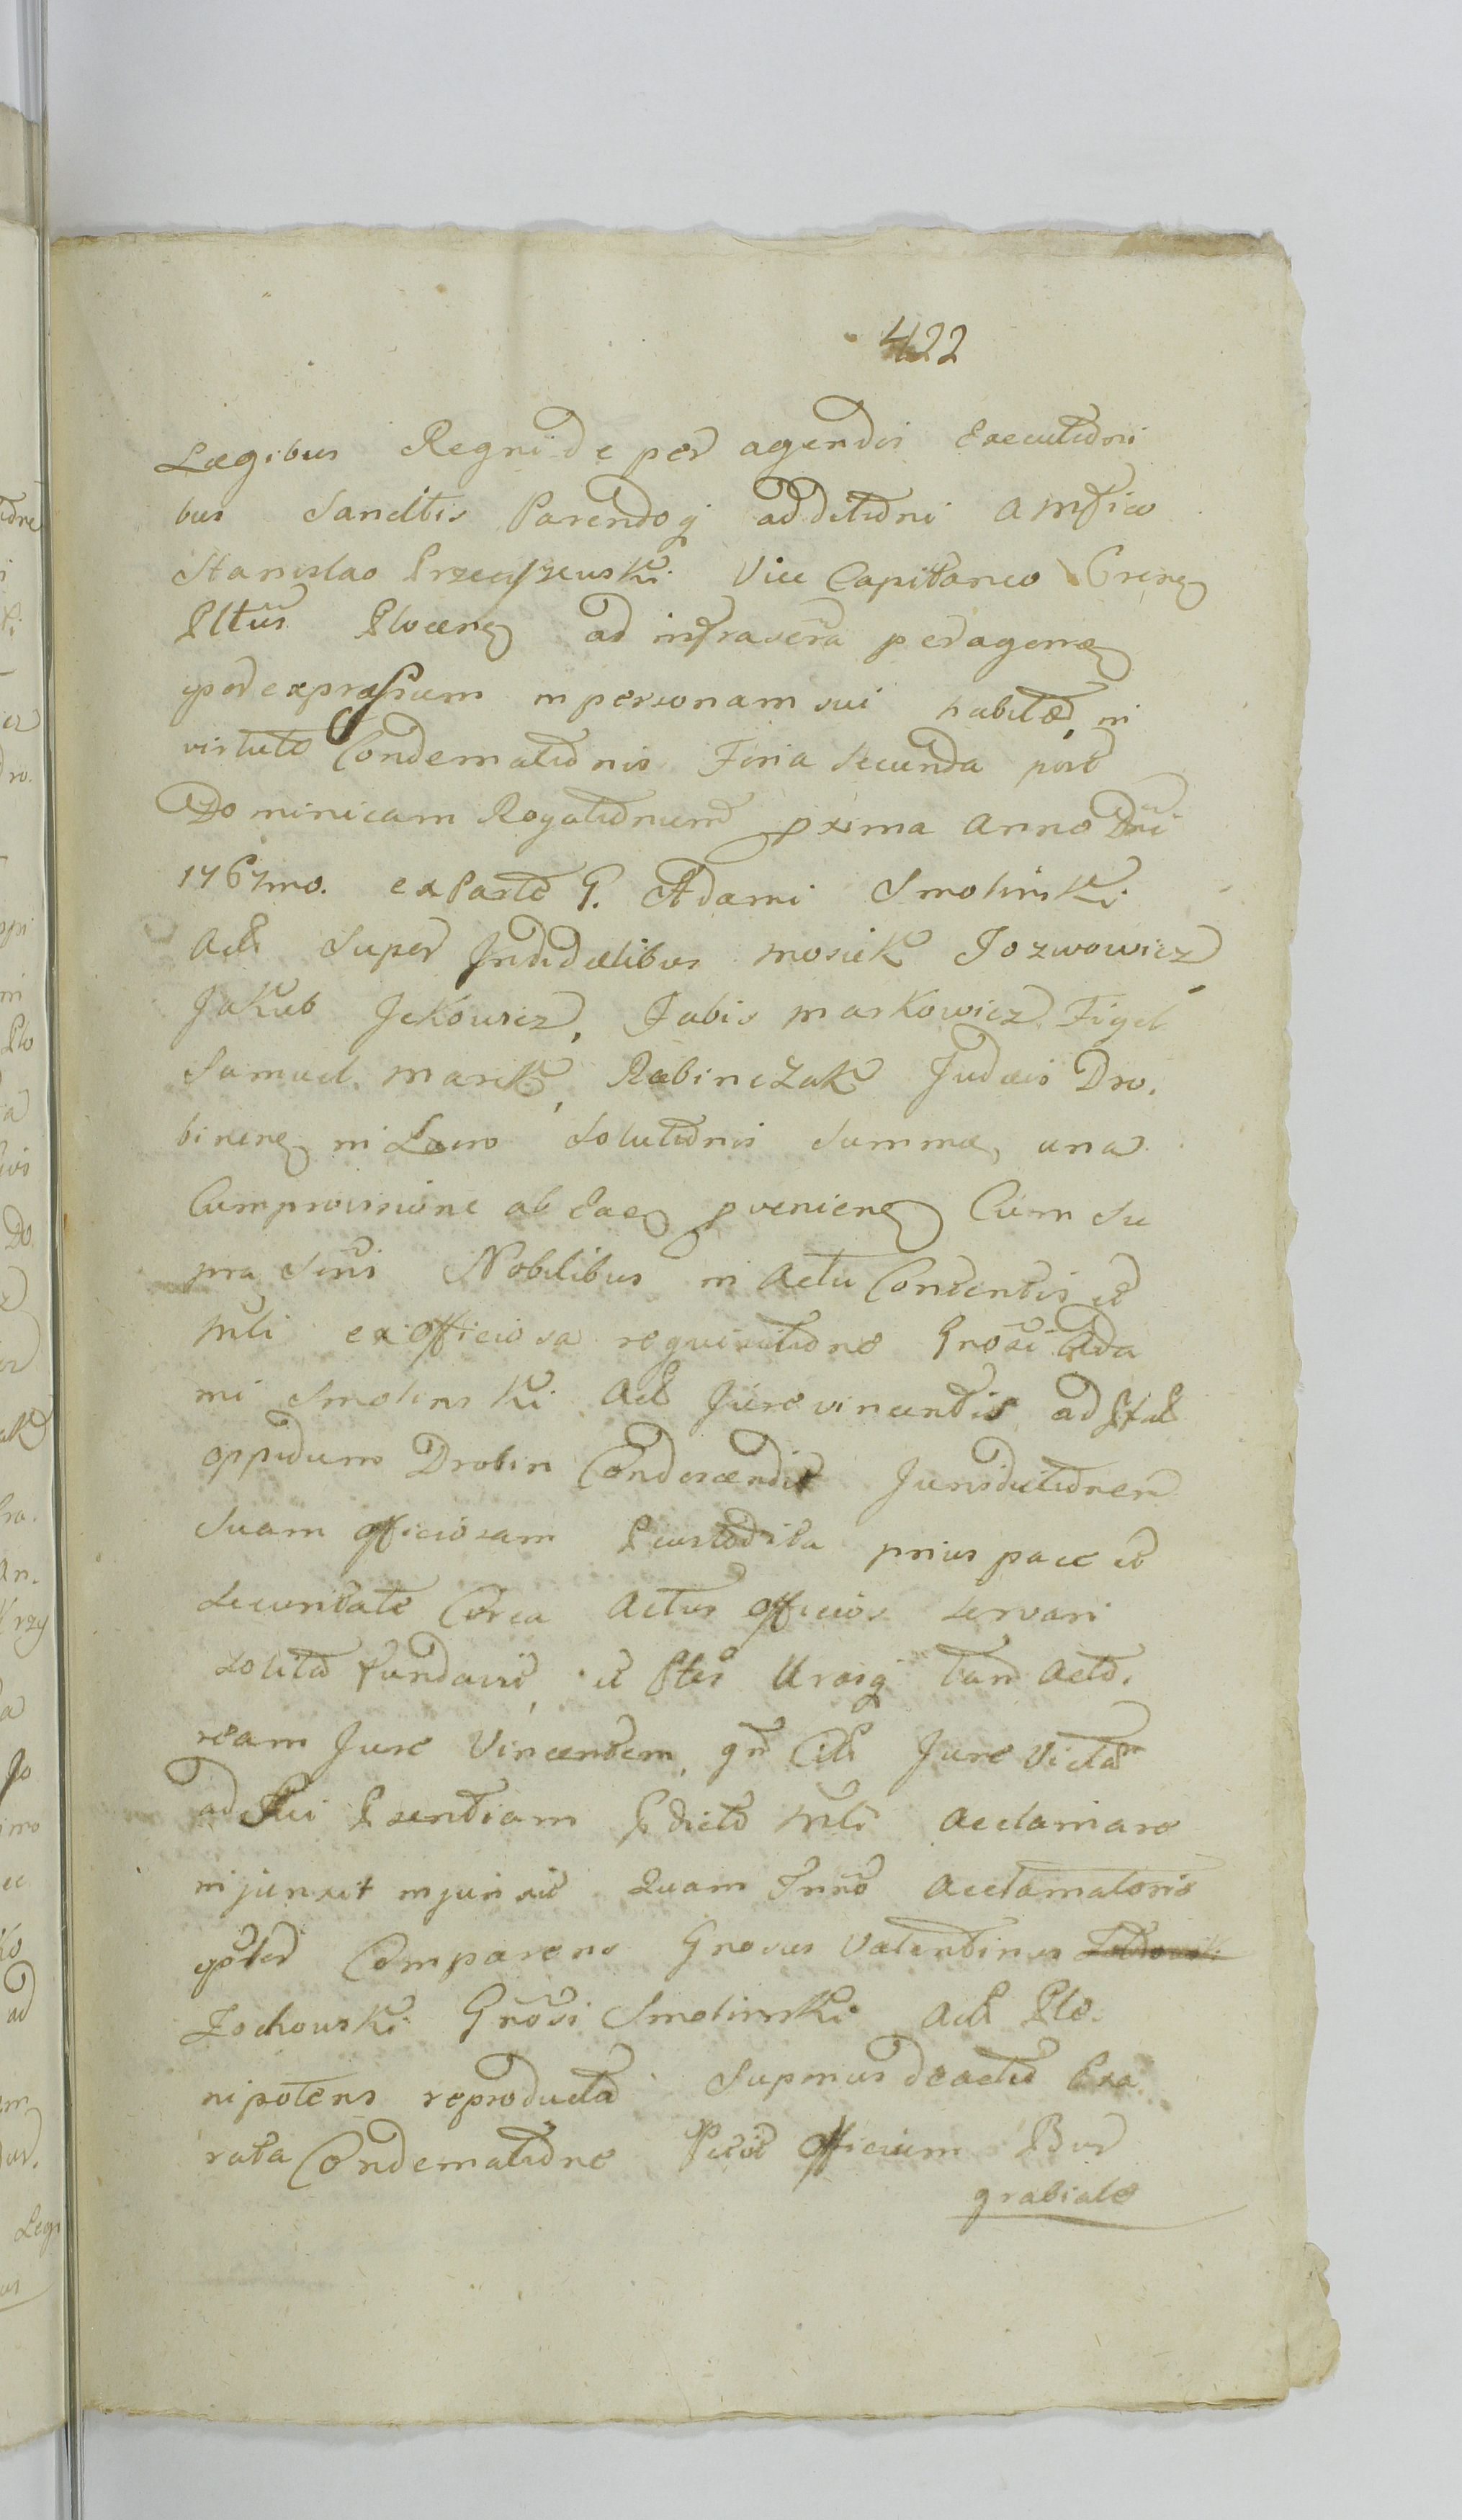 422
Legibus Regni de per agendis Executioni
bus Sancitis Parendoq additioni a Mfico
Stanislao Przeciszewski Vice Capitaneo Gnrēn
Pltūs Plocen ad infrascrīa peragen
per expressum in personam sui habitæ, in
virtute Condemationis Feria Secunda post
Dominicam Rogationum pxima anno Dni
1767mo. ex Parte G. Adami Smolinski
Act Super Infidelibus Mosiek Jozwowicz
Jakub Jekowicz, Jabis Markowicz Figel
Samuel Marek, Rabinczak Judæis Dro.
binen in Loco Solutionis Summæ, una
Cum provisione ab Eaq pvenien Cum Su
pra Scriis Nobilibus in Actu Contentis et
Mli ex officiosa requisitione Gnosi Ada
mi Smolinski Act Jure vincentis ad
oppidum Drobin Condescendit Jurisdictionem
Suam officiosam Pcustodita prius pace et
Securitate Circa Actus officios servari
Solita fundavit, et Ptes Utrasq tam Acto.
ream Jure Vincentem, qm Citt Jure Victa
ad Sui Psentiam Pdicto Mli acclamare
injunxit injunxit Quam Inno Acclamatoris
psoter Comparens Gnosus Valentinus
Zochowski Gnosi Smolinski Act Ple.
nipotens reproducta Supmus de actu Exa
rata Condemnatione Petiit Officium Bur
grabiale